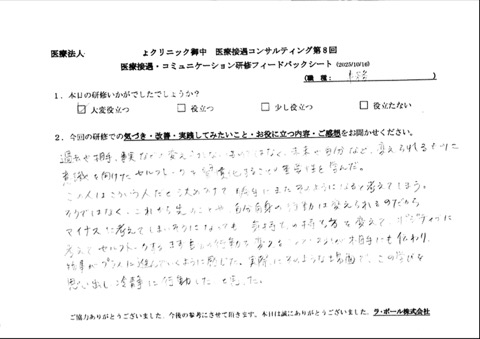 医療法人 よクリニック御中 医療接遇コンサルティング第8回
医療接遇・コミュニケーション研修フィードバックシート (2025/10/16)
(職種: )
1.本日の研修いかがでしたでしょうか?
☑ 大変役立つ □ 役立つ □ 少し役立つ □ 役立たない
2.今回の研修での気づき・改善・実践してみたいこと・お役に立つ内容・ご感想をお聞かせください。
過去や相手、事実などの変えられないものではなく、未来や自分など、変えられるものに
意識を向けたセルフトークを することが重要だと学んだ。
この人はこういう人だと決めつけて 考えてしまう。
そうではなく、これから先のことや自分自身の行動は変えられるのだから
マイナスに考えてしまいそうになっても、 の持ち方を変えて、
考えてセルフトーク 行動を変える 相手にも伝わり、
物事がプラスに進んでいくように感じた。実際にそのような場面で、この学びを
思い出し冷静に行動したいと思った。
ご協力ありがとうございました。今後の参考にさせて頂きます。本日は誠にありがとうございました。 ラ・ポール株式会社